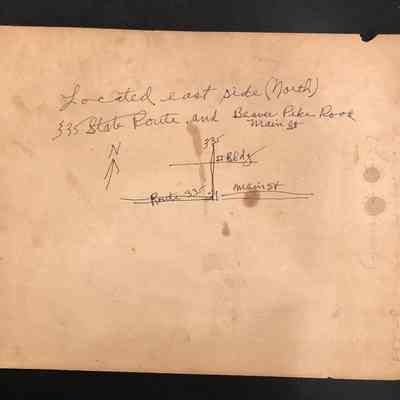 Located east side (North)
335 State Route and Beaver Pike Road
Main St
N
335
Bldg
Route 335
Main St